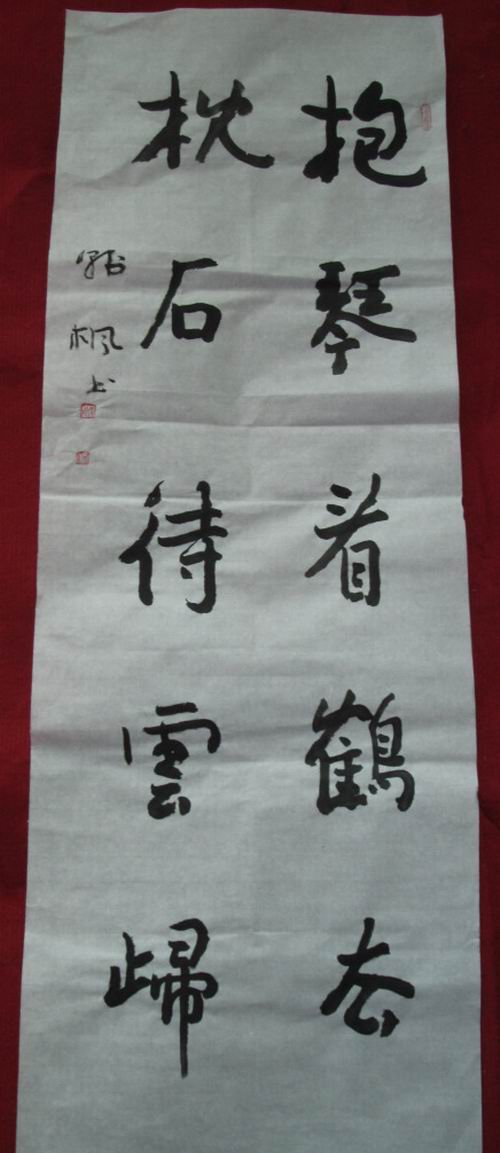 抱琴看鶴去
枕石待雲歸
楓上